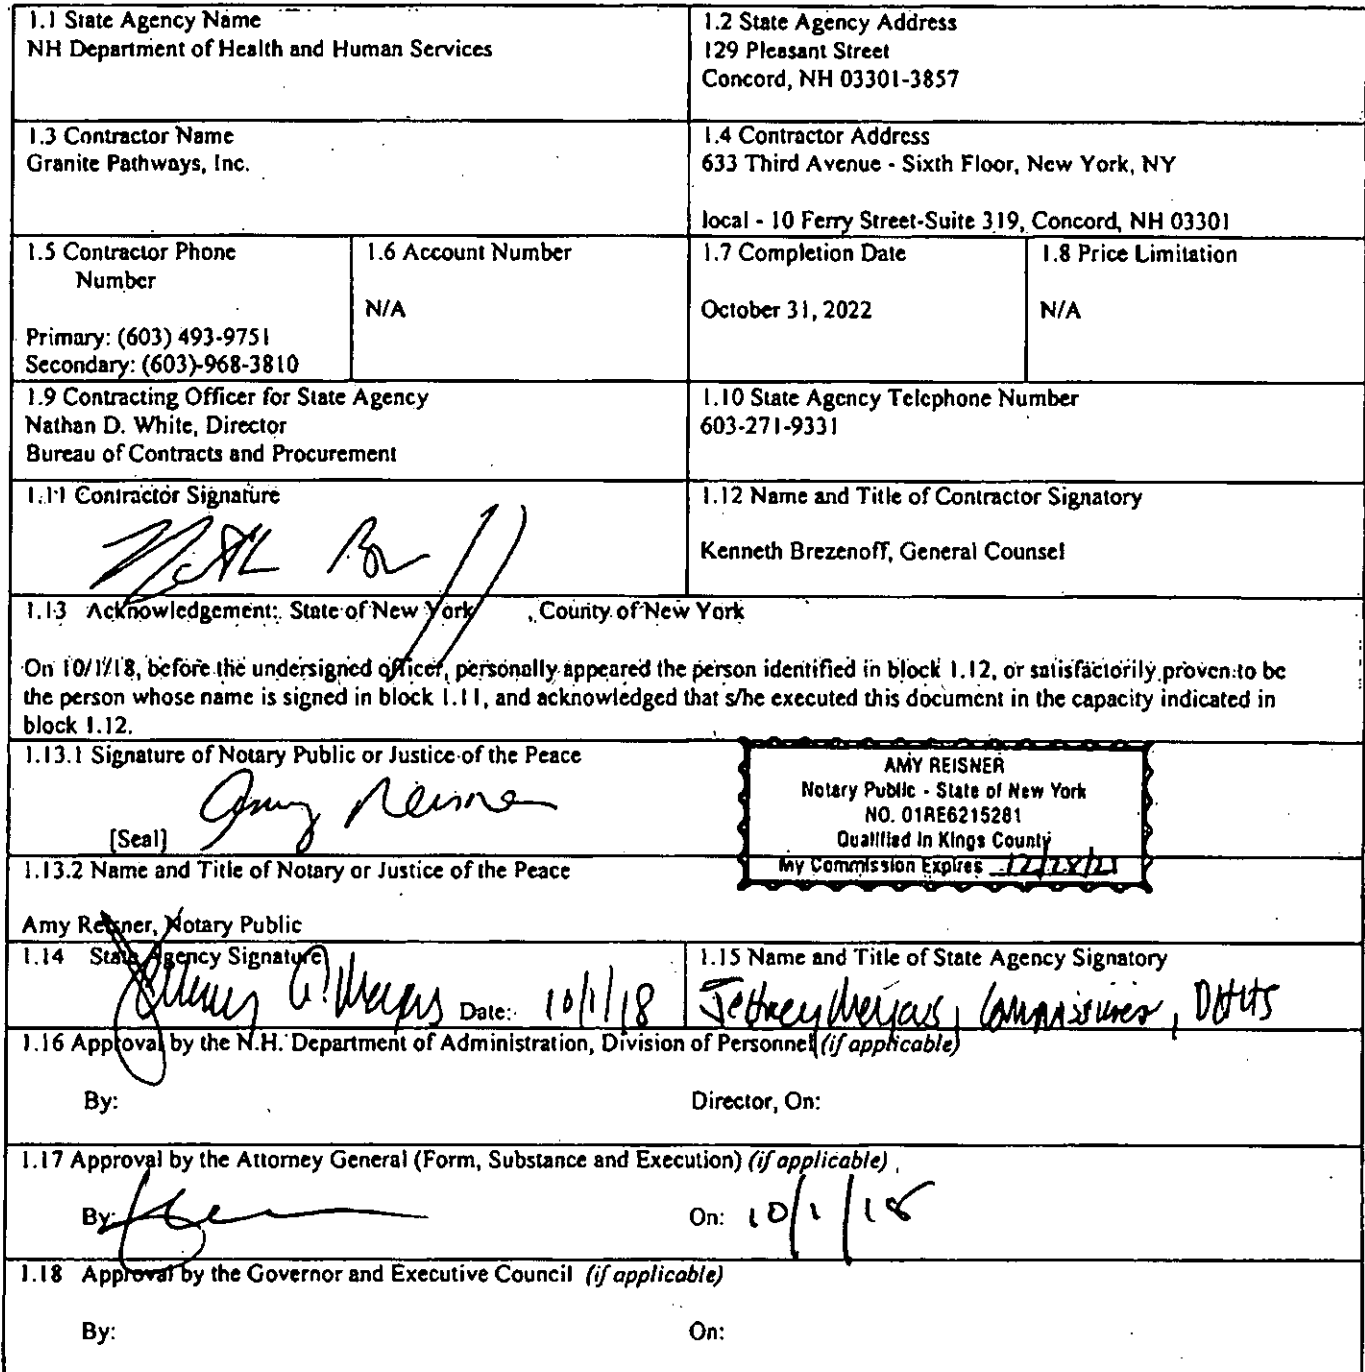 1.1 State Agency Name
NH Department of Health and Human Services
1.2 State Agency Address
129 Pleasant Street
Concord, NH 03301-3857
1.3 Contractor Name
Granite Pathways, Inc.
1.4 Contractor Address
633 Third Avenue - Sixth Floor, New York, NY
local - 10 Ferry Street-Suite 319, Concord, NH 03301
1.5 Contractor Phone
Number
Primary: (603) 493-9751
Secondary: (603)-968-3810
1.6 Account Number
N/A
1.7 Completion Date
October 31, 2022
1.8 Price Limitation
N/A
1.9 Contracting Officer for State Agency
Nathan D. White, Director
Bureau of Contracts and Procurement
1.10 State Agency Telephone Number
603-271-9331
1.11 Contractor Signature
1.12 Name and Title of Contractor Signatory
Kenneth Brezenoff, General Counsel
1.13 Acknowledgement: State of New York , County of New York
On 10/1/18, before the undersigned officer, personally appeared the person identified in block 1.12, or satisfactorily proven to be
the person whose name is signed in block 1.11, and acknowledged that s/he executed this document in the capacity indicated in
block 1.12.
1.13.1 Signature of Notary Public or Justice of the Peace
Amy Reisner
[Seal]
AMY REISNER
Notary Public - State of New York
NO. 01RE6215281
Qualified in Kings County
My Commission Expires 12/28/21
1.13.2 Name and Title of Notary or Justice of the Peace
Amy Reisner, Notary Public
1.14 State Agency Signature
Date: 10/1/18
1.15 Name and Title of State Agency Signatory
Jeffrey Meyers, Commissioner, DHHS
1.16 Approval by the N.H. Department of Administration, Division of Personnel (if applicable)
By:
Director, On:
1.17 Approval by the Attorney General (Form, Substance and Execution) (if applicable)
By:
On: 10/1/18
1.18 Approval by the Governor and Executive Council (if applicable)
By:
On: